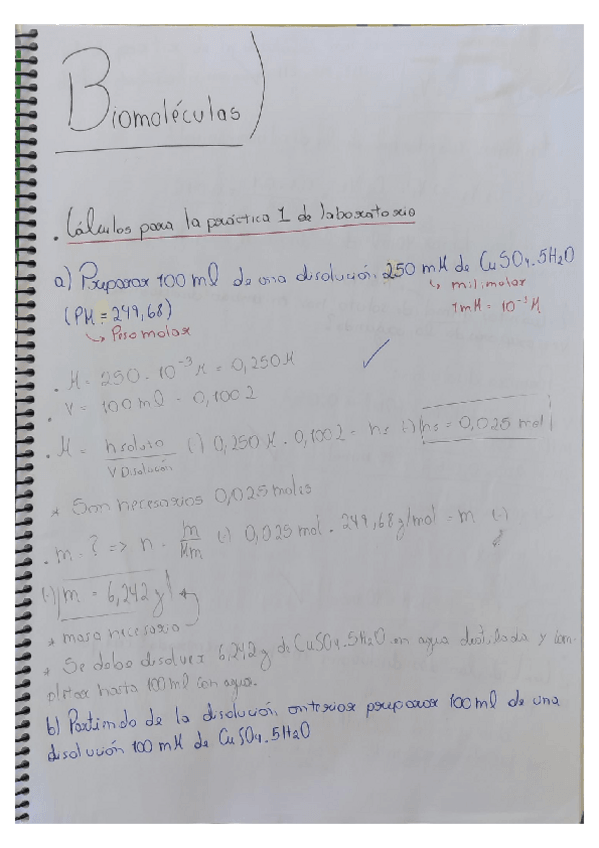 Biomoléculas
. Cálculos para la práctica 1 de laboratorio
a) Preparar 100 ml de una disolución 250 mM de CuSO4.5H2O
↳ milimolar
(PM = 249,68)
1mM = 10⁻³ M
↳ Peso molar
. M = 250 . 10⁻³ M = 0,250M
. V = 100 ml = 0,100 L
. M = n soluto / V Disolución (=) 0,250 M . 0,100 L = ns (=) ns = 0,025 mol
* Son necesarios 0,025 moles
. m = ? => n = m / Mm (=) 0,025 mol . 249,68 g/mol = m (=)
(=) m = 6,242 g
* masa necesaria
* Se debe disolver 6,242 g de CuSO4.5H2O en agua destilada y com-
pletar hasta 100 ml con agua.
b) Partindo de la disolución anterior preparar 100 ml de una
disolución 100 mM de CuSO4.5H2O